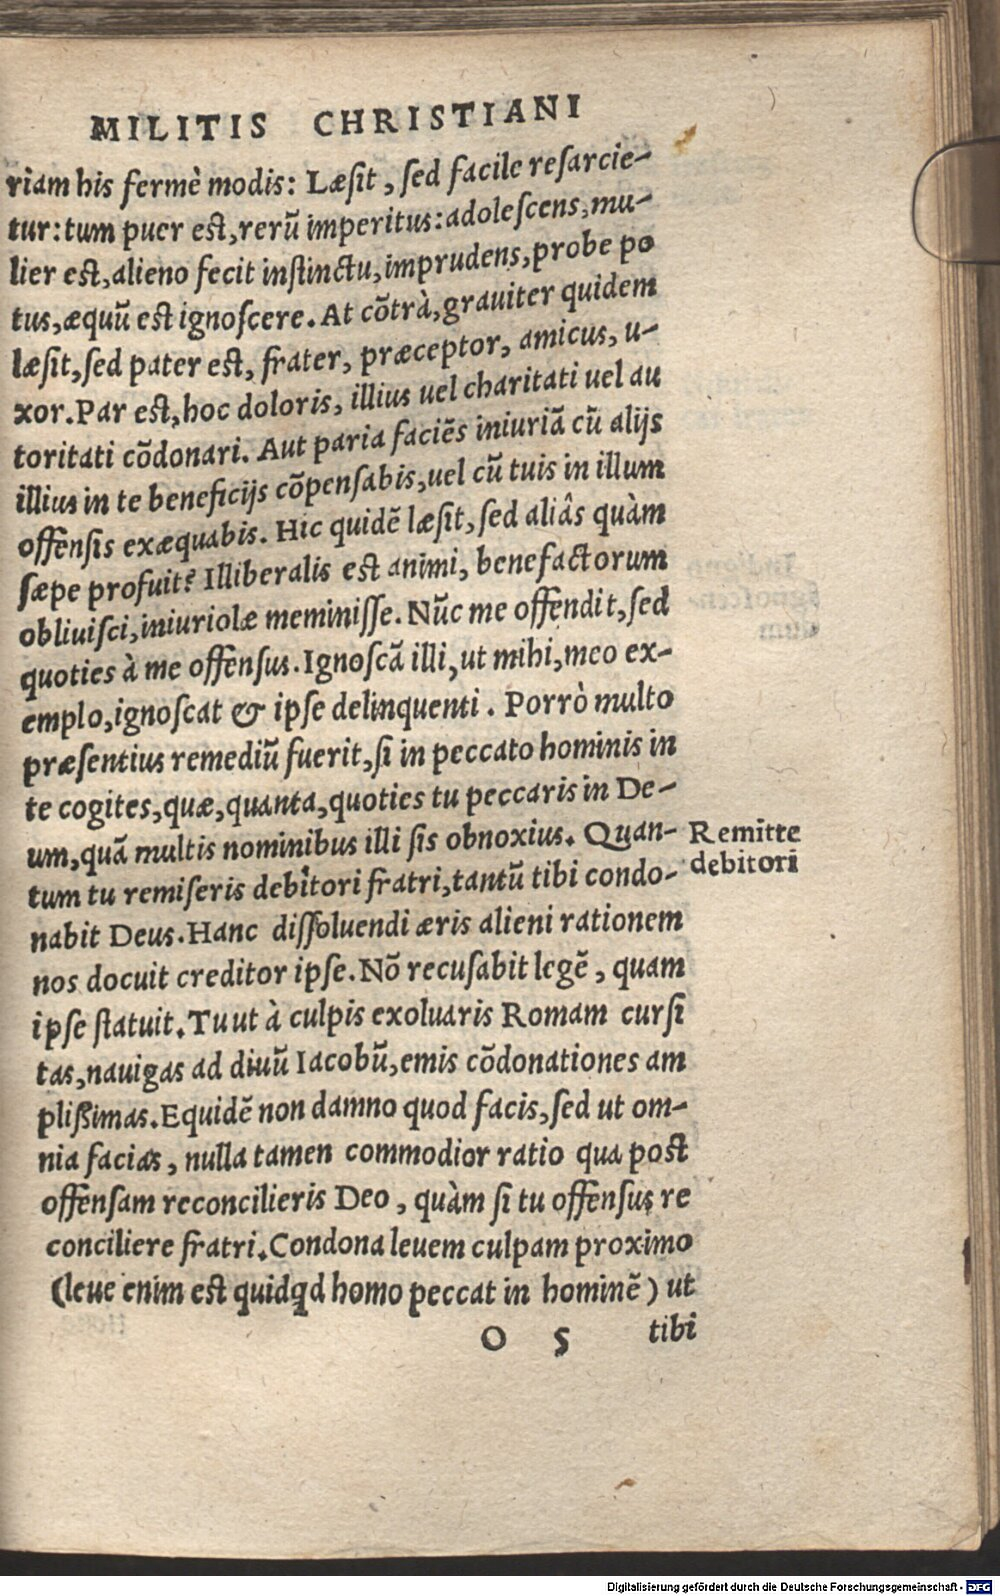 MILITIS CHRISTIANI
riam his fermè modis: Læsit, sed facile resarcie-
tur: tum puer est, rerũ imperitus: adolescens, mu-
lier est, alieno fecit instinctu, imprudens, probe po
tus, æquũ est ignoscere. At cõtrà, grauiter quidem
læsit, sed pater est, frater, præceptor, amicus, u-
xor. Par est, hoc doloris, illius uel charitati uel au
toritati cõdonari. Aut paria faciẽs iniuriã cũ alijs
illius in te beneficijs cõpensabis, uel cũ tuis in illum
offensis exæquabis. Hic quidẽ læsit, sed aliâs quàm
sæpe profuit? Illiberalis est animi, benefactorum
obliuisci, iniuriolæ meminisse. Nũc me offendit, sed
quoties à me offensus. Ignoscã illi, ut mihi, meo ex-
emplo, ignoscat & ipse delinquenti. Porrò multo
præsentius remediũ fuerit, si in peccato hominis in
te cogites, quæ, quanta, quoties tu peccaris in De-
um, quã multis nominibus illi sis obnoxius. Quan-
tum tu remiseris debitori fratri, tantũ tibi condo-
nabit Deus. Hanc dissoluendi æris alieni rationem
nos docuit creditor ipse. Nõ recusabit legẽ, quam
ipse statuit. Tu ut à culpis exoluaris Romam cursi
tas, nauigas ad diuũ Iacobũ, emis cõdonationes am
plißimas. Equidẽ non damno quod facis, sed ut om-
nia facias, nulla tamen commodior ratio qua post
offensam reconcilieris Deo, quàm si tu offensus re
conciliere fratri. Condona leuem culpam proximo
(leue enim est quidqd homo peccat in hominẽ) ut
O 5 tibi
Remitte
debitori
Digitalisierung gefördert durch die Deutsche Forschungsgemeinschaft - DFG